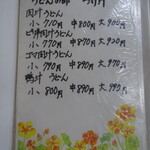 肉汁うどん
小 710円 中800円 大900円
ピリ辛肉汁うどん
小 770円 中870円 大970円
ゴマ肉汁うどん
小 790円 中890円 大990円
鴨汁うどん
小 800円 中890円 大990円